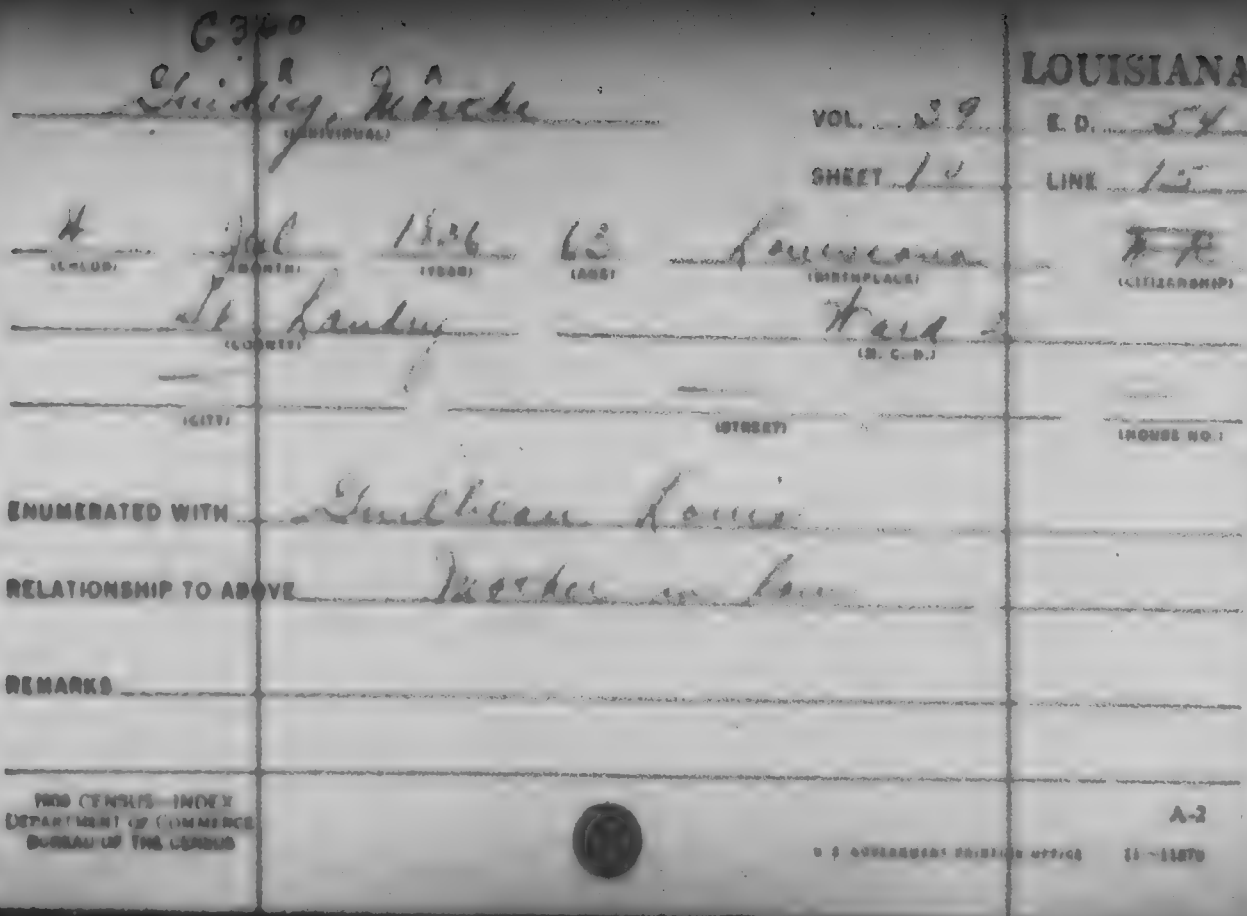 LOUISIANA
(INDIVIDUAL)
VOL. 39 E. D. 54
SHEET LINE 15
(COLOR) (MONTH) 1836 (YEAR) 63 (AGE) Louisiana (BIRTHPLACE) (CITIZENSHIP)
St Landry (COUNTY) Ward 2 (M. C. D.)
— (CITY) — (STREET) — (HOUSE NO.)
ENUMERATED WITH Guilbeau Louis
RELATIONSHIP TO ABOVE Mother in law
REMARKS
1900 CENSUS—INDEX
DEPARTMENT OF COMMERCE
BUREAU OF THE CENSUS
A-2
U S GOVERNMENT PRINTING OFFICE